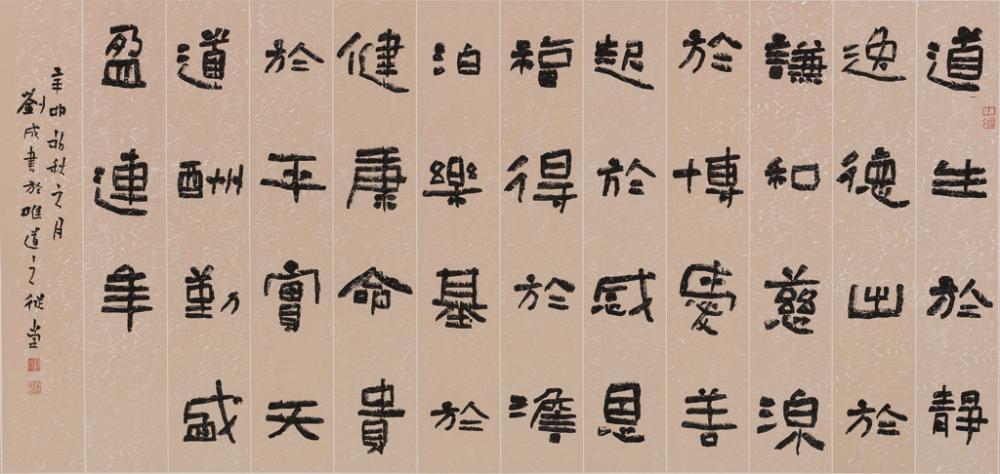 道生於靜
逸德出於
謙和慈源
於博愛善
起於感恩
福得於澹
泊樂基於
健康命貴
於平實天
道酬勤盛
盈連年
辛卯初秋之月
劉成書於唯道之從堂